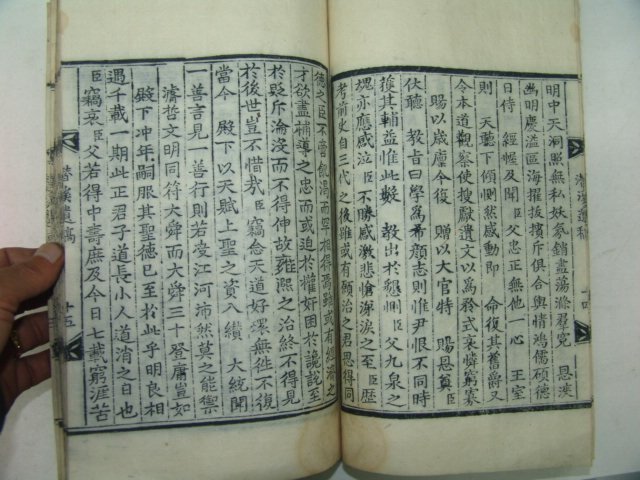 明中天洞照無私妖氛銷盡湯滌羣兇 恩浹
幽明慶溢區海擢拔擯斥俱合輿情鴻儒碩德
日侍 經幄及聞 臣父忠正無他一心 王室
則 天聽下傾惻然感動即 命復其舊爵又
令本道觀察使搜獻遺文以爲矜式哀憐窮寡
賜以歲廩今復 贈以大官特 賜恩奠 臣
伏聽 敎旨曰學爲希顔志則惟尹恨不同時
獲其輔益惟此數 敎出於 臣父九泉之
魄亦應感泣 臣不勝感激悲愴涕淚之至 臣歷
考前史自三代之後雖或有願治之君思得同
德之臣不啻飢渴而罕相得焉雖或有經濟之
才欲盡補導之忠而或迫於權奸困於讒說至
於貶斥淪沒而不得伸故雍熙之治終不得見
於後世豈不惜哉 臣竊念天道好還無往不復
當今 殿下以天賦上聖之資入纘 大統聞
一善言見一善行則若受江河沛然莫之能禦
濬哲文明同符大舜而大舜三十登庸豈如
殿下冲年嗣服其聖德已至於此乎明良相
遇千載一期此正君子道長小人道消之日也
臣竊哀 臣父若得中壽庶及今日七載窮涯苦
潛溪遺稿 十四
潛溪遺稿 十五